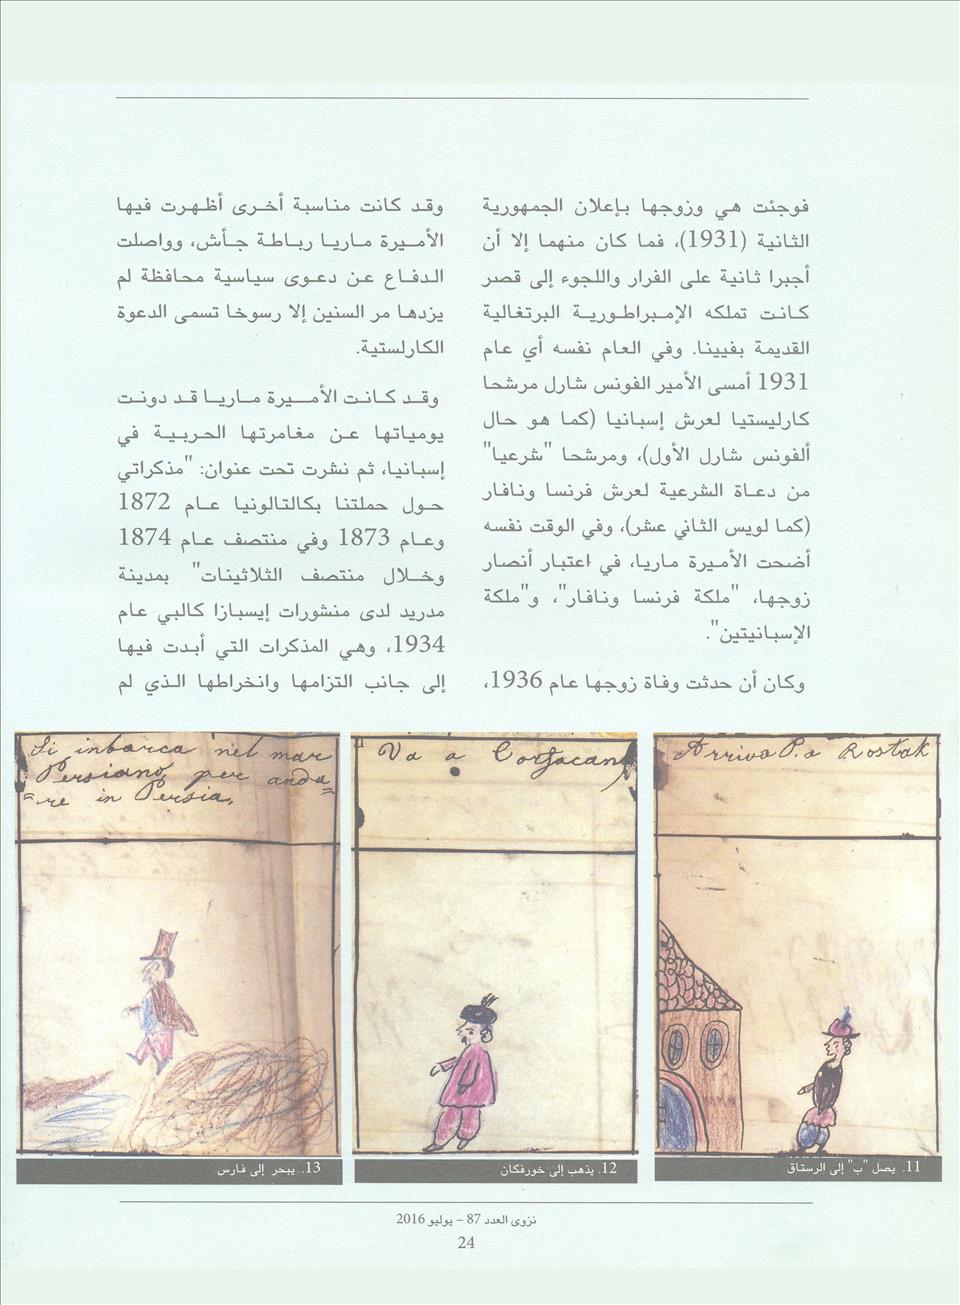 فوجئت هي وزوجها بإعلان الجمهورية
الثانية (1931)، فما كان منهما إلا أن
أجبرا ثانية على الفرار واللجوء إلى قصر
كانت تملكه الإمبراطورية البرتغالية
القديمة بفيينا. وفي العام نفسه أي عام
1931 أمسى الأمير الفونس شارل مرشحا
كارليستيا لعرش إسبانيا (كما هو حال
ألفونس شارل الأول)، ومرشحا "شرعيا"
من دعاة الشرعية لعرش فرنسا ونافار
(كما لويس الثاني عشر)، وفي الوقت نفسه
أضحت الأميرة ماريا، في اعتبار أنصار
زوجها، "ملكة فرنسا ونافار"، و"ملكة
الإسبانيتين".
وكان أن حدثت وفاة زوجها عام 1936،
وقد كانت مناسبة أخرى أظهرت فيها
الأميرة ماريا رباطة جأش، وواصلت
الدفاع عن دعوى سياسية محافظة لم
يزدها مر السنين إلا رسوخا تسمى الدعوة
الكارلستية.
وقد كانت الأميرة ماريا قد دونت
يومياتها عن مغامرتها الحربية في
إسبانيا، ثم نشرت تحت عنوان: "مذكراتي
حول حملتنا بكالتالونيا عام 1872
وعام 1873 وفي منتصف عام 1874
وخلال منتصف الثلاثينات" بمدينة
مدريد لدى منشورات إيسبازا كالبي عام
1934، وهي المذكرات التي أبدت فيها
إلى جانب التزامها وانخراطها الذي لم
Arriva P. a Rostak
11. يصل "ب" إلى الرستاق
Va a Corfacan
12. يذهب إلى خورفكان
Si inbarca nel mar
Persiano per anda
=re in Persia.
13. يبحر إلى فارس
نزوى العدد 87 – يوليو 2016
24